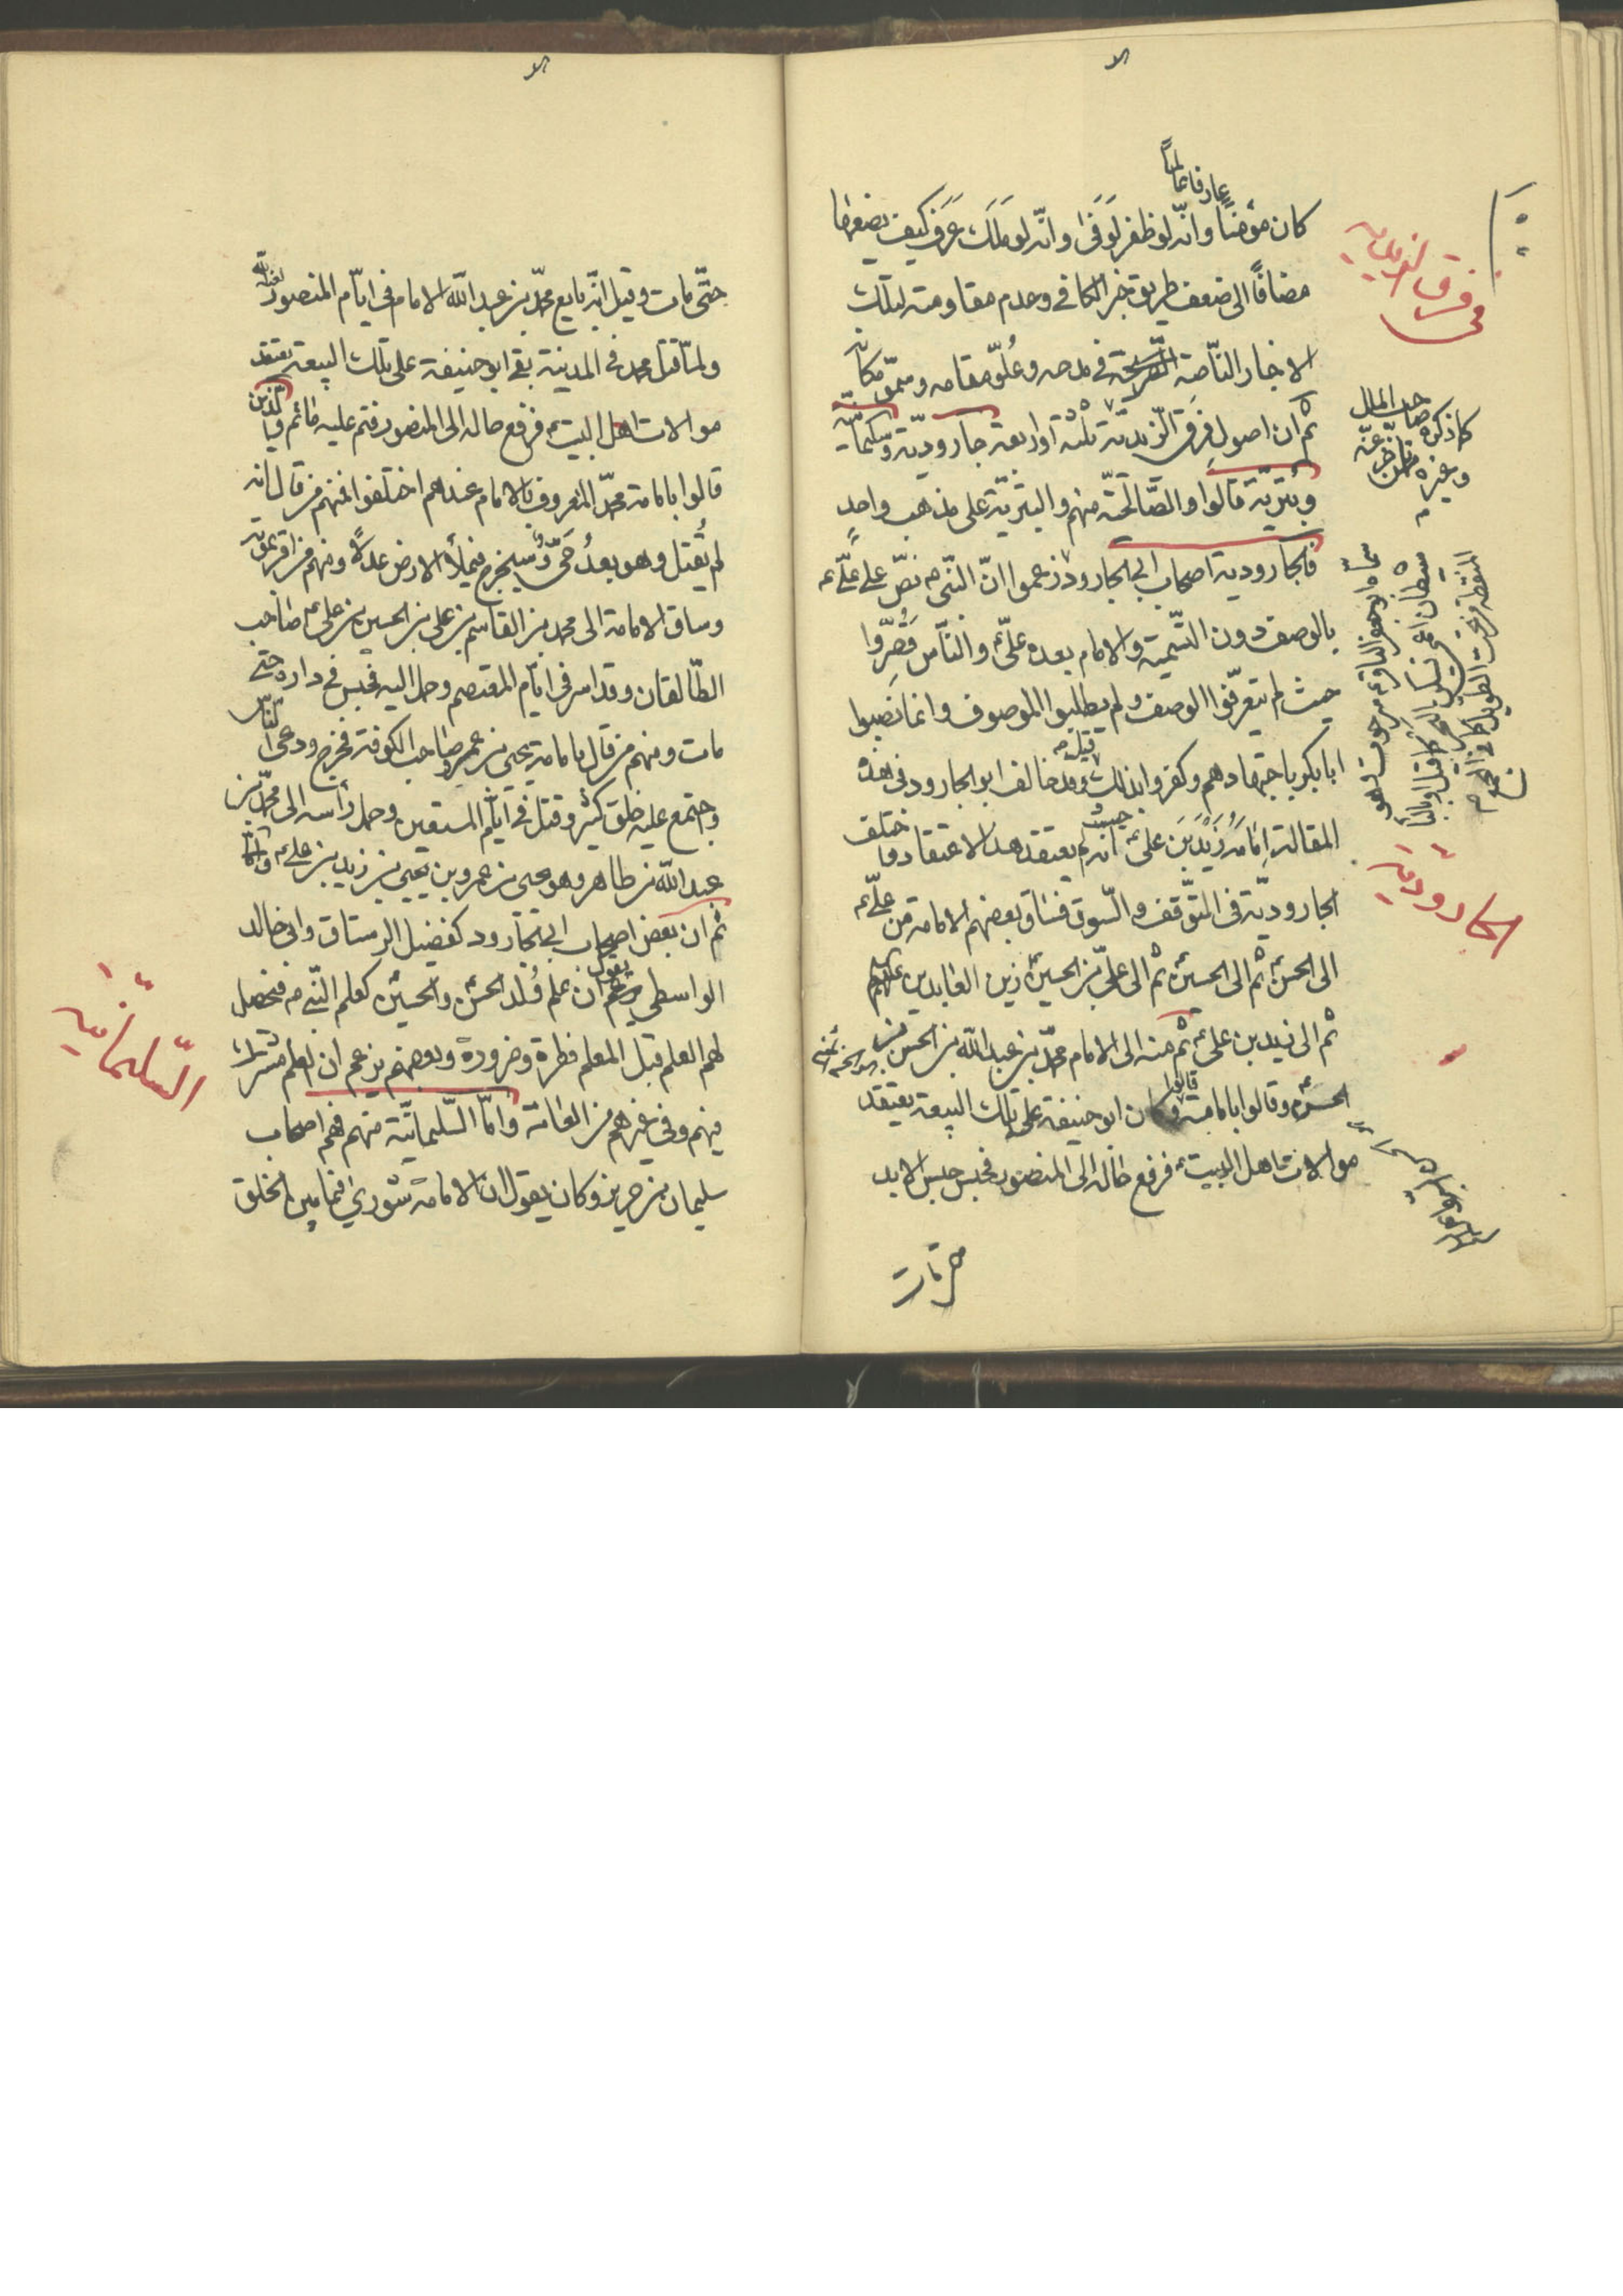 كان مؤمنًا وانّه لو ظفر لَوَفَىٰ وانّه لو مَلَكَ عَرَفَ كيف يضعها
عارفا عالمًا
مضافًا الى ضعف طريق خبر الكافى وعدم مقاومته لتلك
الاخبار الناصّة الصّريحة فى مدحه وعُلوّ مقامه وسموّ مكانه
ثم ان اصول فِرَق الزيديّة ثلثة او اربعة جاروديّة وسليمانيّة
وبُتريّة قالوا والصّالحيّة منهم والبتريّة على مذهب واحدٍ
فالجاروديّة اصحاب ابى الجارود زعموا انّ النّبى ص نصّ على علىّ ع
بالوصف دون التّسمية والامام بعده علىّ ع والنّاس قَصَّروا
حيث لم يتعرّفوا الوصف ولم يطلبوا الموصوف وانما نصبوا
ابا بكر باختيارهم وكفروا بذلك قيل وقد خالف ابو الجارود فى هذه
المقالة اِمَامَهُ زَيْدَ بنَ علىّ ع حيث انه لم يعتقد هذا الاعتقاد واختلف
الجاروديّة فى التّوقف والسّوق فساق بعضهم الامامة من علىّ ع
الى الحسن ع ثم الى الحسين ع ثم الى علىّ بن الحسين ع زين العابدين ع
ثم الى زيد بن على ع ثم منه الى الامام محمّد بن عبد الله بن الحسن بن
الحسن ع وقالوا بامامته قالوا وكان ابو حنيفة على تلك البيعة يعتقد
موالات اهل البيت ع فرفع حاله الى المنصور فحبس حبس الابد
حتى مات
فى فرق الزيدية
كما ذكره صاحب الملل
وغيره
الجاروديّة
سمّاه ابو جعفر الباقر ع سرحوب
شيطان اعمى يسكن البحر
حتّى مات وقيل انّه بايع محمّد بن عبد الله الامام فى ايّام المنصور
ولمّا قتل محمد فى المدينة بقى ابو حنيفة على تلك البيعة يعتقد
موالات اهل البيت ع فرفع حاله الى المنصور فتم عليه ماتم والّذين
قالوا بامامة محمّد المعروف بالامام عندهم اختلفوا فمنهم من قال انه
لم يُقتل وهو بعدُ حَىّ وسيخرج فيملأ الارض عدلاً ومنهم من اقر بموته
وساق الامامة الى محمد بن القاسم بن على بن الحسين بن على ع صاحب
الطّالقان وقد اسر فى ايّام المعتصم وحمل اليه فحبس فى داره حتى
مات ومنهم من قال بامامة يحيى بن عمر صاحب الكوفة فخرج ودعى النّاس
واجتمع عليه خلق كثير وقتل فى ايّام المستعين وحمل رأسه الى محمّد بن
عبد الله بن طاهر وهو يحيى بن عمرو بن يحيى بن زيد بن على ع
ثم ان بعض اصحاب ابى الجارود كفضيل الرستاق وابى خالد
الواسطى يقول ان علم وُلد الحسن ع والحسين ع كعلم النّبى ص فيحصل
لهم العلم قبل المعلم فطرة وضرورة وبعضهم يزعم ان العلم مشترك
فيهم وفى غيرهم من العامّة وامّا السّليمانيّة منهم فهم اصحاب
سليمان بن جرير وكان يقول ان الامامة شورى فيما بين الخلق
السّليمانيّة